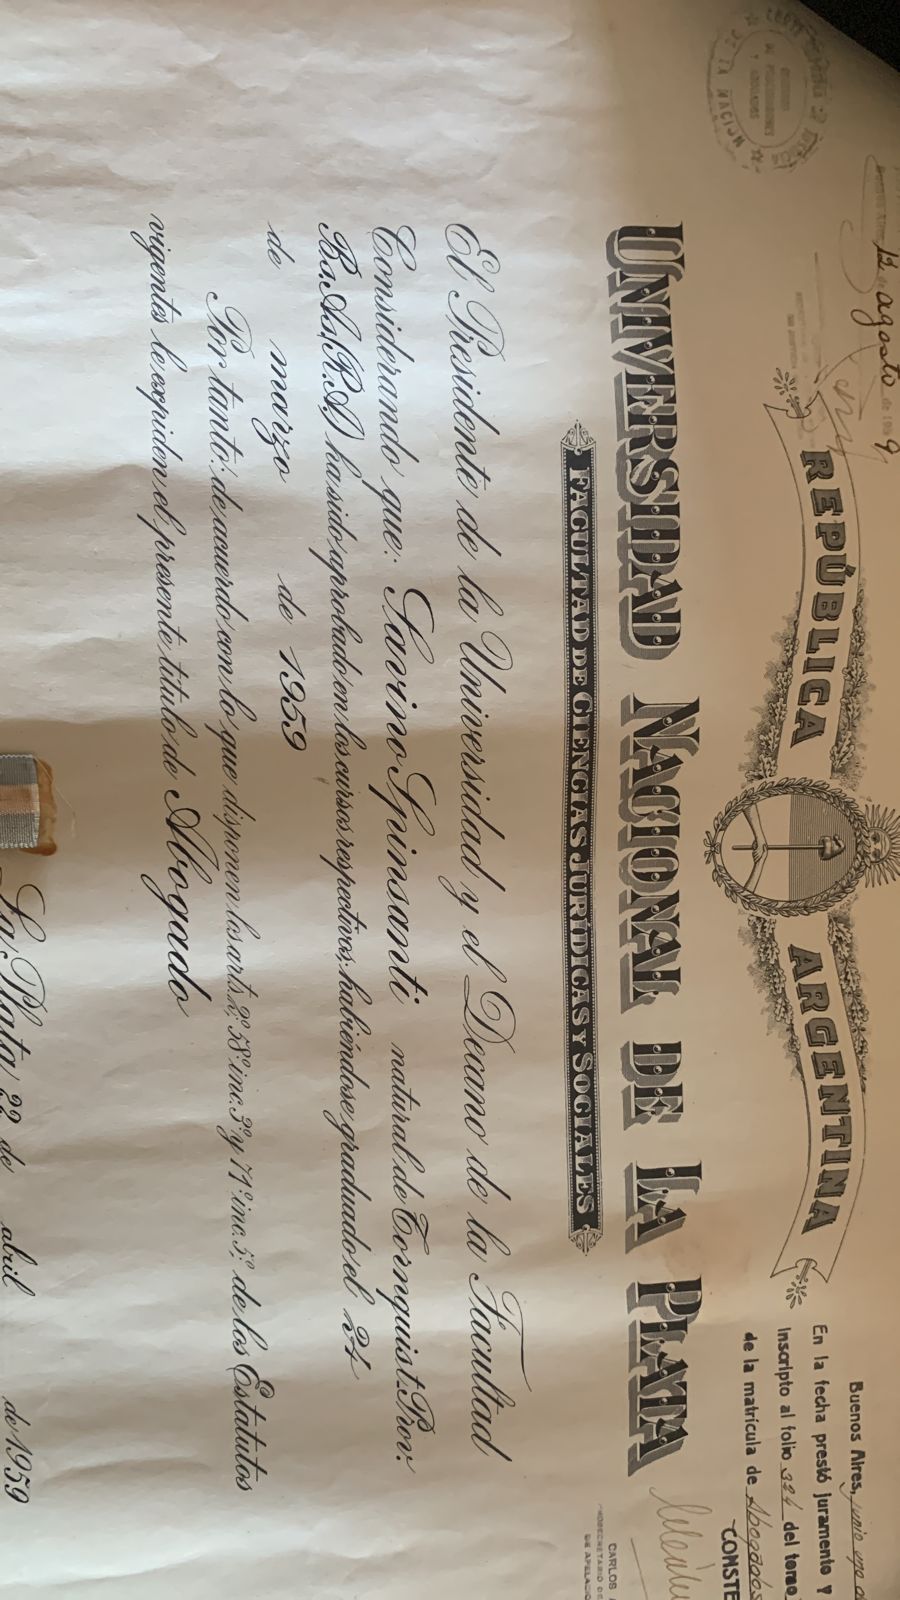 12 agosto 9
REPÚBLICA ARGENTINA
CORTE SUPREMA DE JUSTICIA
DE LA NACION
Y ABOGADOS
Buenos Aires, junio uno
En la fecha prestó juramento y
Inscripto al folio 334 del tomo
de la matrícula de Abogados
CONSTE
CARLOS
DE APELACIO
UNIVERSIDAD NACIONAL DE LA PLATA
FACULTAD DE CIENCIAS JURÍDICAS Y SOCIALES
El Presidente de la Universidad y el Decano de la Facultad
Considerando que: Savino Spinsanti natural de Tornquist. Prov.
Bs. As. (R.A.) ha sido aprobado en los cursos respectivos; habiéndose graduado el 24
de marzo de 1959
Por tanto: de acuerdo con lo que disponen los arts. 2º, 58º inc. 3º y 71º inc. 5º, de los Estatutos
vigentes le expiden el presente título de Abogado
La Plata 22 de abril de 1959